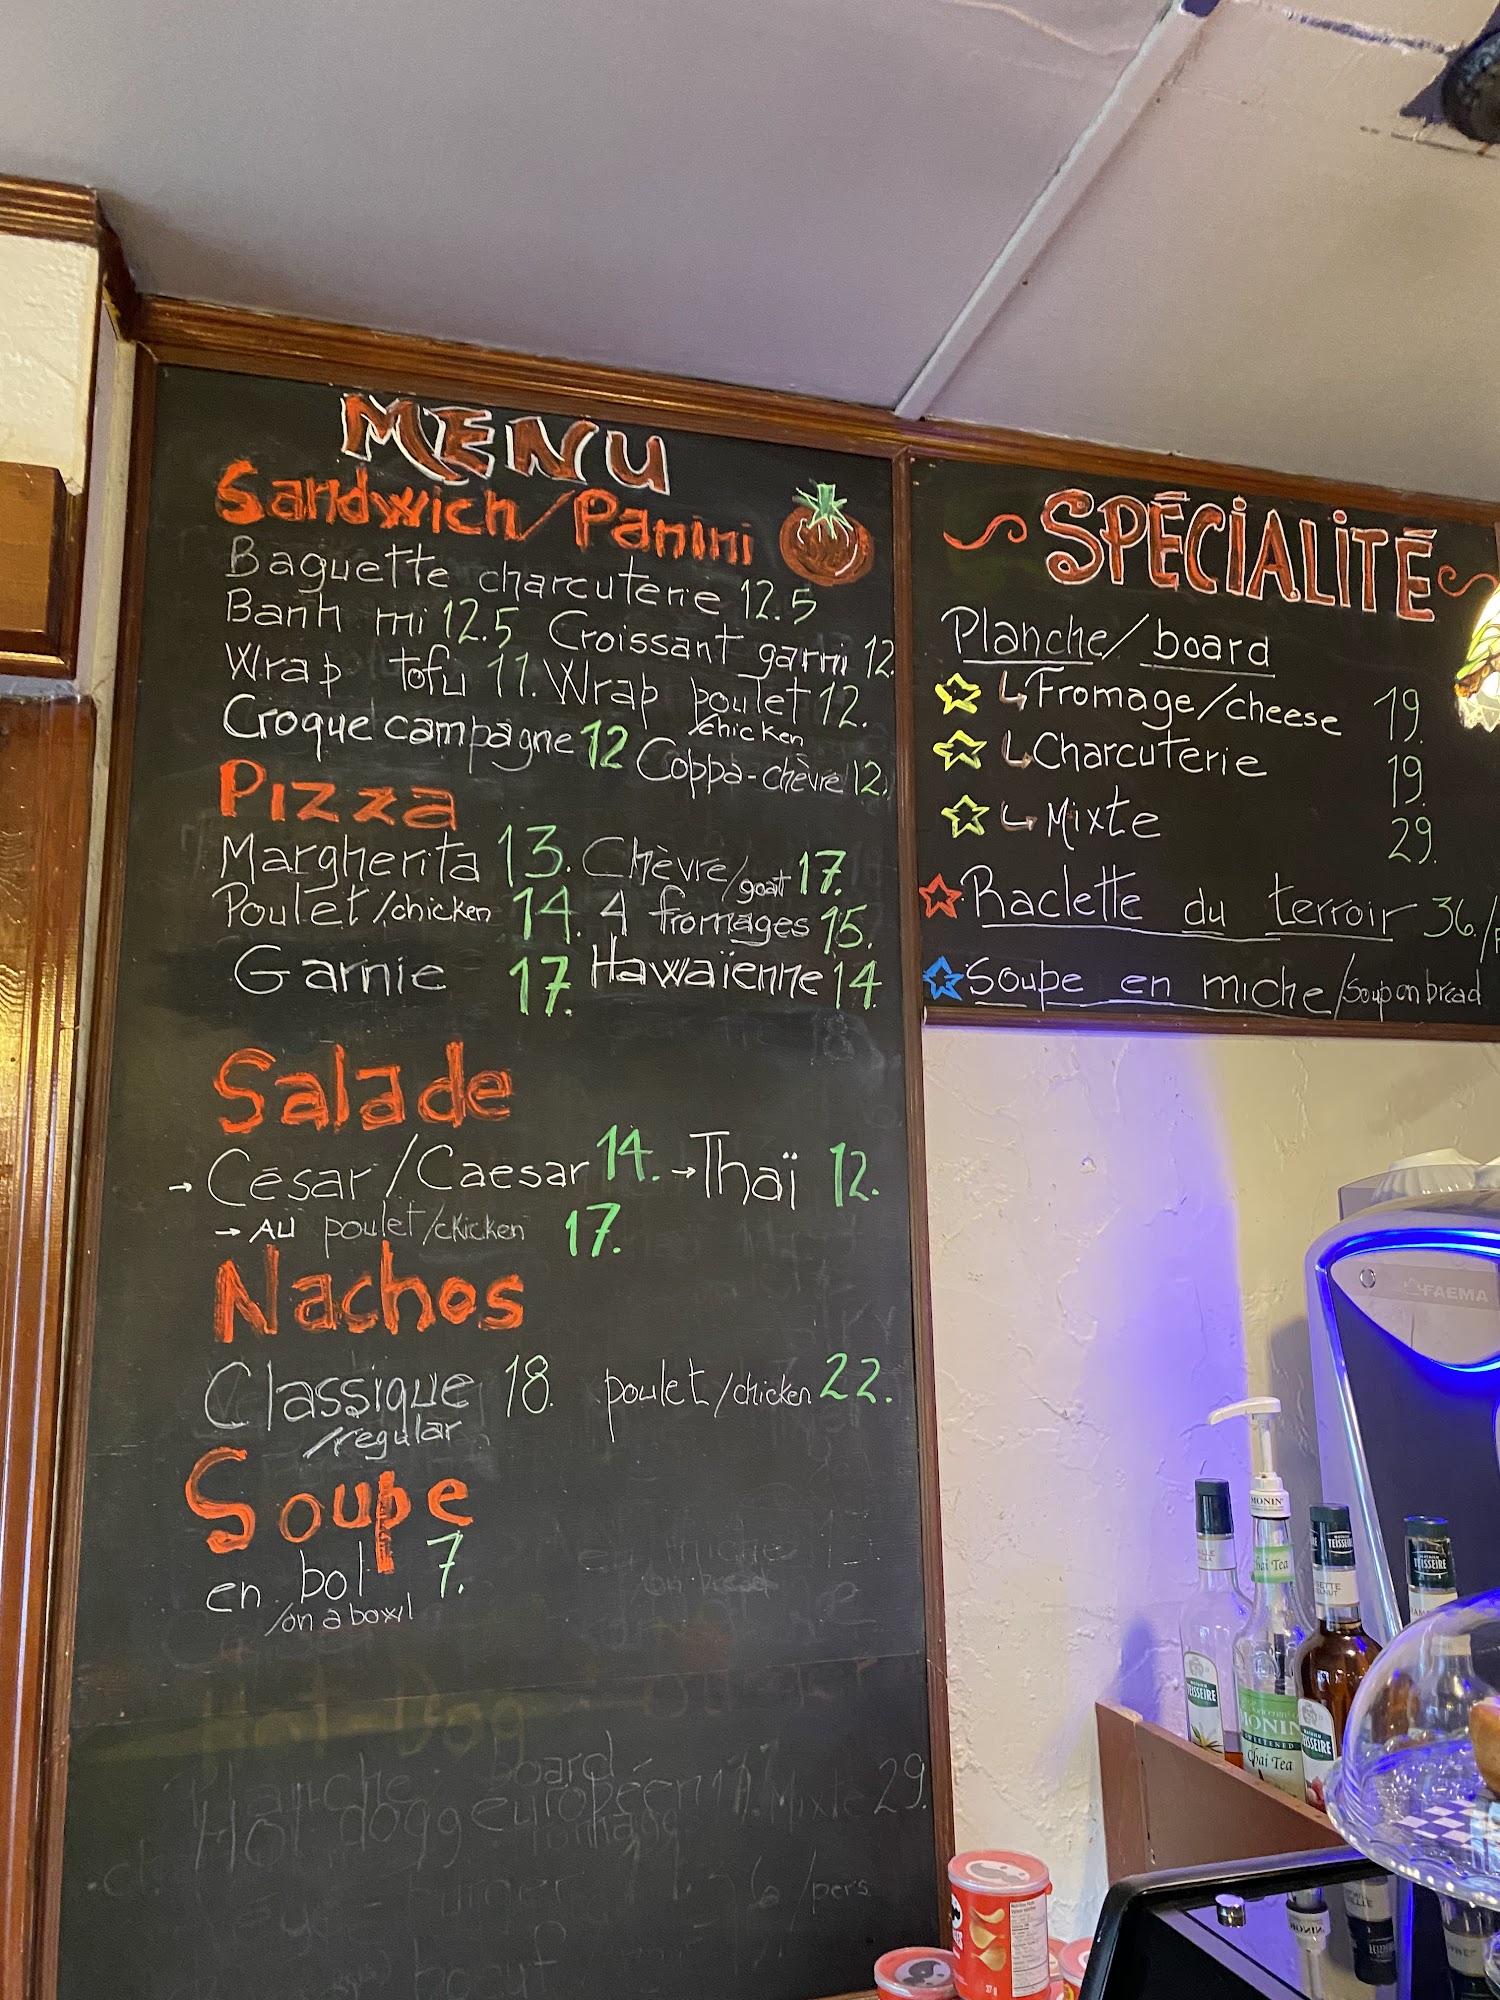 MENU
Sandwich/Panini
Baguette charcuterie 12.5
Banh mi 12.5 Croissant garni 12.
Wrap tofu 11. Wrap poulet 12.
/chicken
Croque campagne 12 Coppa-chèvre 12.
Pizza
Margherita 13. Chèvre/goat 17.
Poulet/chicken 14. 4 fromages 15.
Garnie 17. Hawaïenne 14.
Salade
→ César/Caesar 14. → Thaï 12.
→ AU poulet/chicken 17.
Nachos
Classique 18. poulet/chicken 22.
/regular
Soupe
en bol 7.
/on a bowl
Planche board
Hot dogg européen Mixte 29.
/pers
SPÉCIALITÉ
Planche/board
↳ Fromage/cheese 19.
↳ Charcuterie 19.
↳ Mixte 29.
Raclette du terroir 36./p
Soupe en miche/Soup on bread
FAEMA
MONIN
Chai Tea
TEISSEIRE
TEISSEIRE
TEISSEIRE
MONIN
Chai Tea
TEISSEIRE